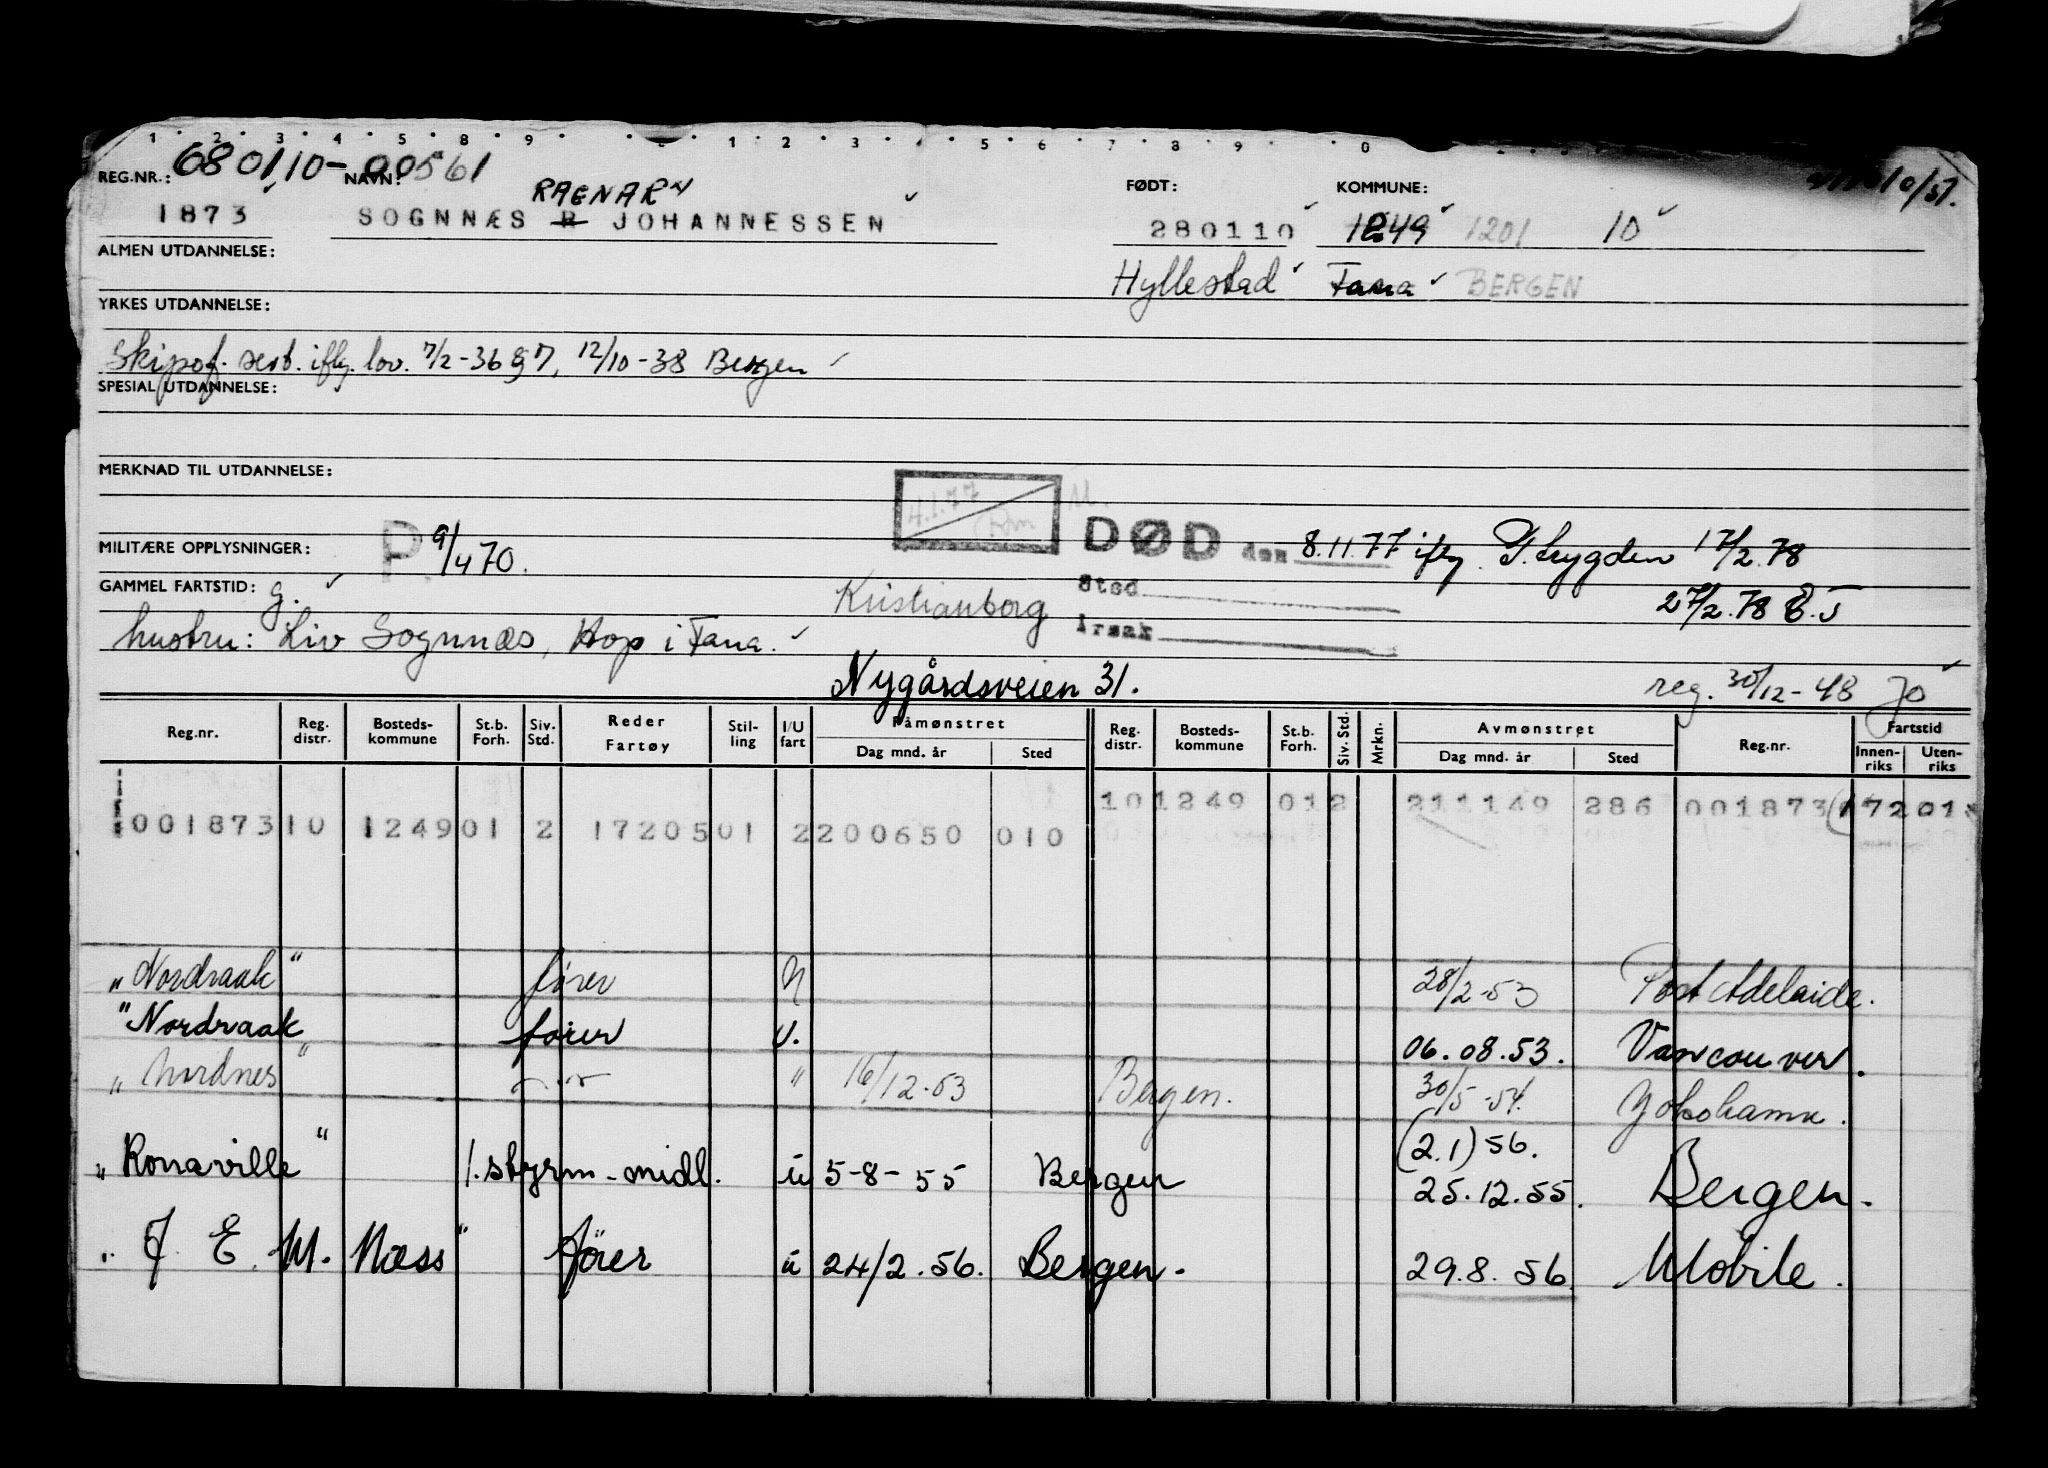 1 2 3 4 5 8 9 1 2 3 4 5 6 7 8 9 0
680110-00561
REG.NR.: NAVN: FØDT: KOMMUNE:
RAGNAR
1873 SOGNNÆS R JOHANNESSEN 280110 1249 1201 10
ALMEN UTDANNELSE: Hyllestad Fana BERGEN
YRKES UTDANNELSE:
Skipsf. sert. iflg. lov. 7/2-36 §7, 12/10-38 Bergen
SPESIAL UTDANNELSE:
MERKNAD TIL UTDANNELSE:
4.1.77
MILITÆRE OPPLYSNINGER: P. 9/4 70. DØD den 8.11.77 iflg. T.trygden 17/2.78
GAMMEL FARTSTID: g. Kristianborg Sted 27/2.78
hustru: Liv Sognnæs, Hop i Fana. Årsak
Nygårdsveien 31. reg. 30/12-48 Jo
Reg.nr. Reg. distr. Bosteds-kommune St.b. Forh. Siv. Std. Reder Fartøy Stil-ling I/U fart Påmønstret Dag mnd. år Sted Reg. distr. Bosteds-kommune St.b. Forh. Siv. Std. Mrkn. Avmønstret Dag mnd. år Sted Reg.nr. Fartstid Innen-riks Uten-riks
101249 012 211149 286 001873 17201
00187310 124901 2 1720501 2200650 010
"Nordraak" fører U 28/2-53 Port Adelaide.
"Nordraak" fører U. 06.08.53. Vancouver.
"Nordnes" " 16/12-53 Bergen. 30/5-54. Yokohama.
(2.1) 56.
"Ronaville" 1. styrm-midl. u 5-8-55 Bergen 25.12.55. Bergen.
"J. E. M. Næss" fører u 24/2.56. Bergen. 29.8.56 Mobile.